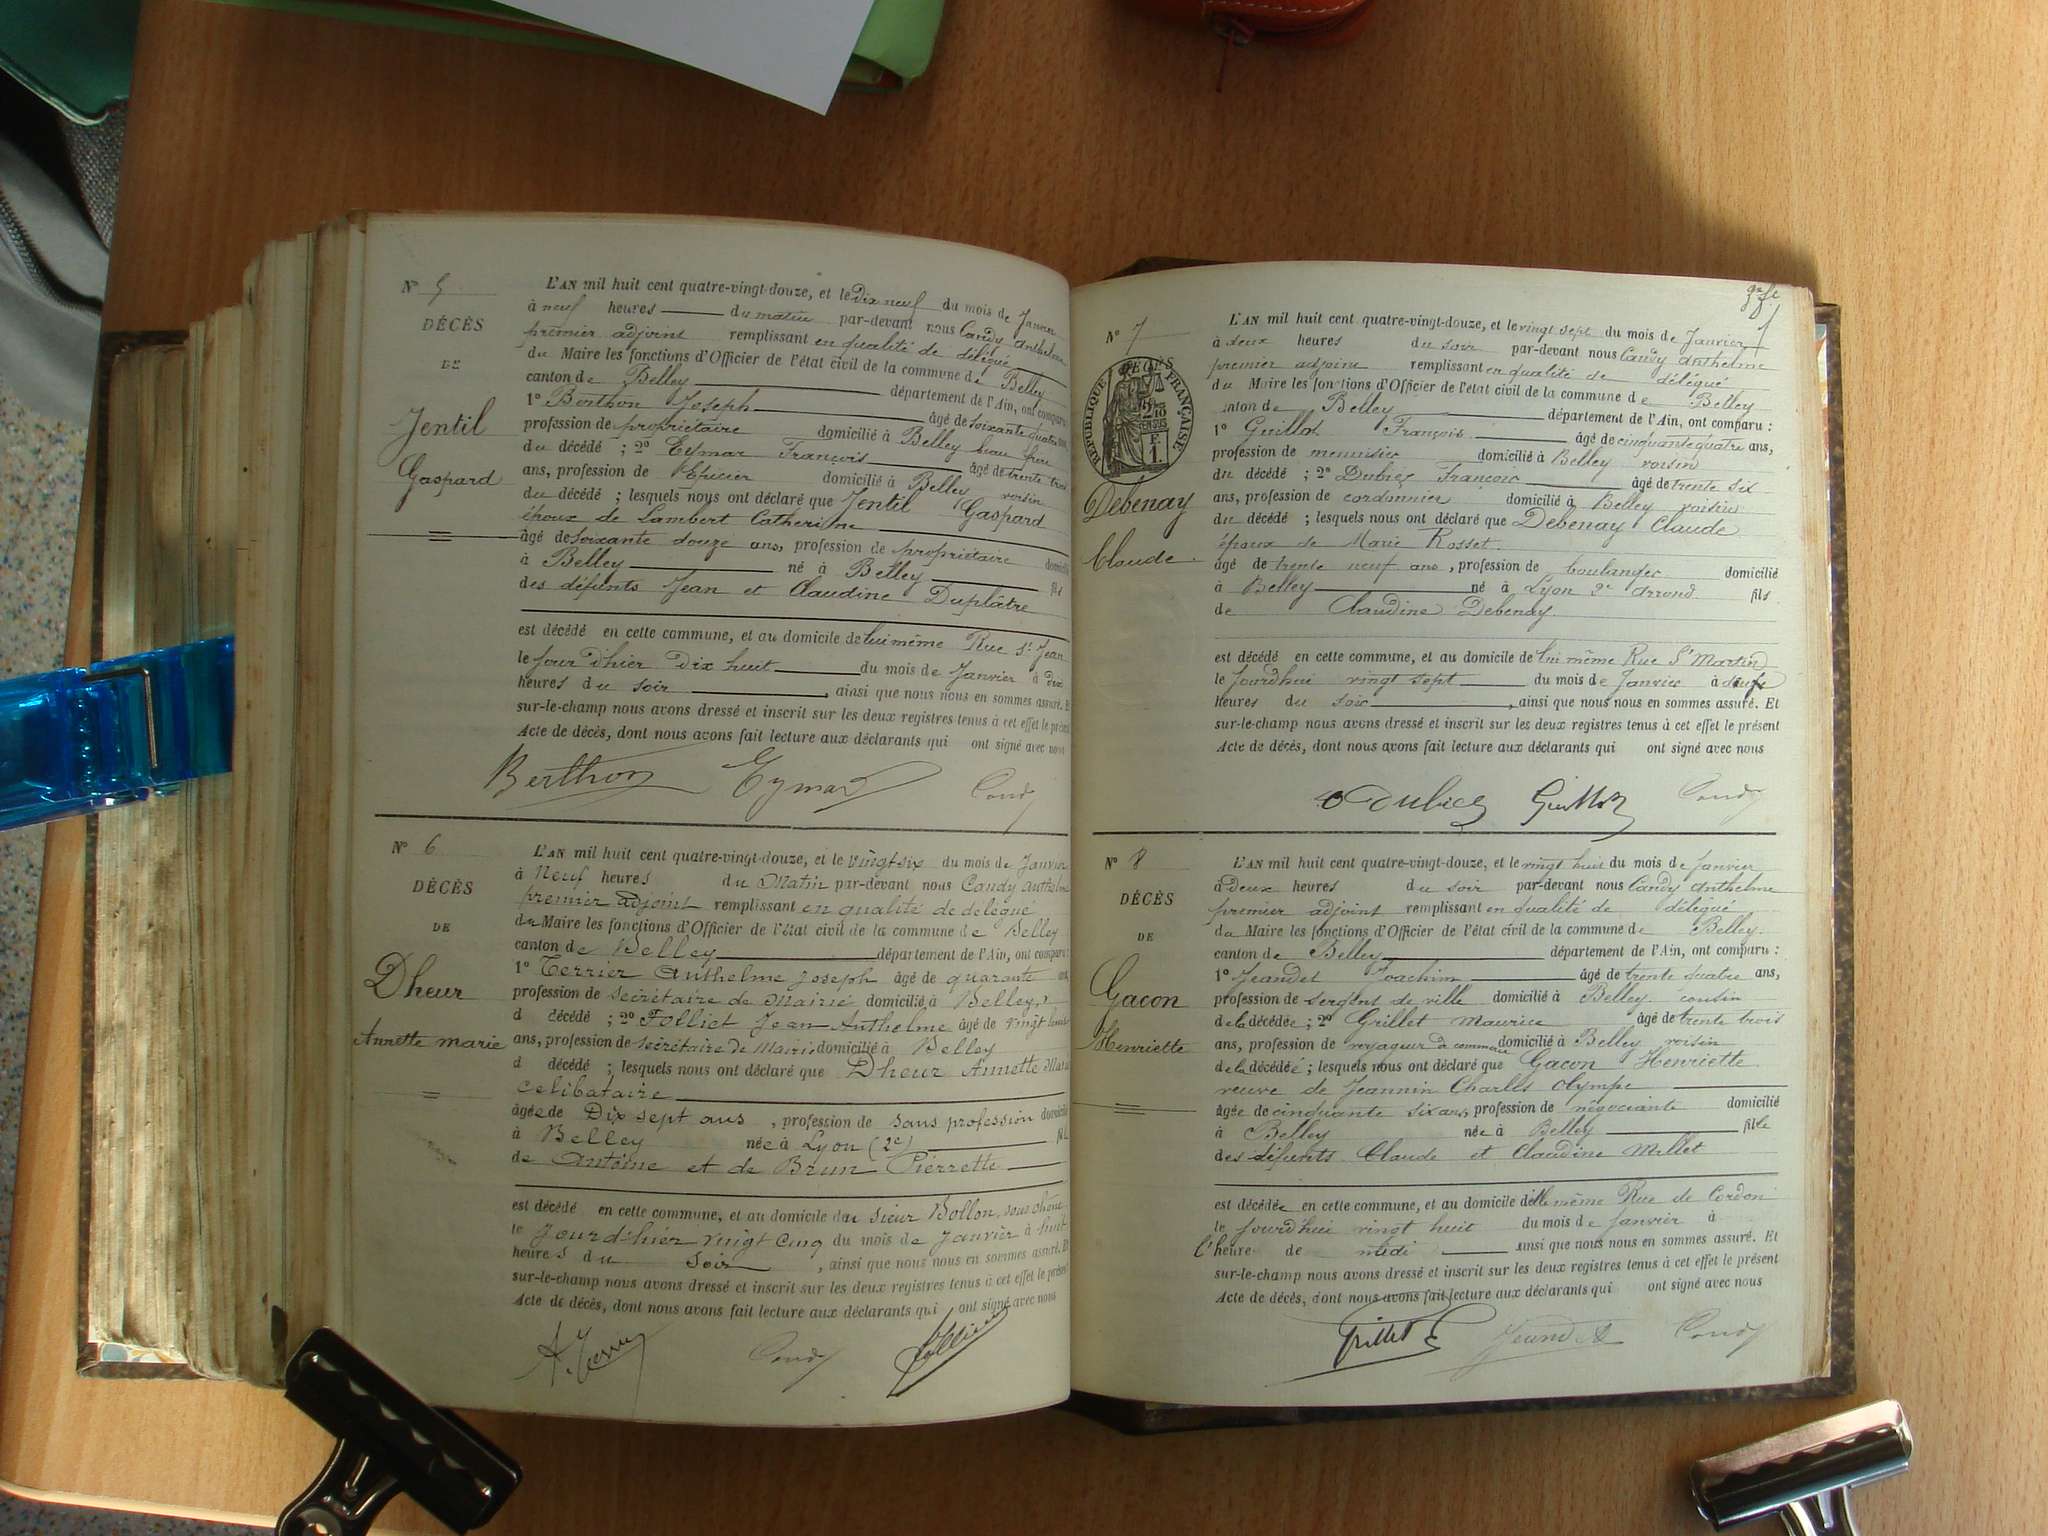 Nº 5
DÉCÈS
DE
Jentil
Gaspard
L'AN mil huit cent quatre-vingt-douze, et le Dix neuf du mois de Janvier
à neuf heures du matin par-devant nous Candy Anthelme
premier adjoint remplissant en qualité de délégué
du Maire les fonctions d'Officier de l'état civil de la commune de Belley
canton de Belley département de l'Ain, ont comparu
1º Berthon Joseph âgé de soixante quatre ans,
profession de propriétaire domicilié à Belley beau frère
du décédé ; 2º Eymar François âgé de trente trois
ans, profession de Epicier domicilié à Belley voisin
du décédé ; lesquels nous ont déclaré que Jentil Gaspard
époux de Lambert Catherine
âgé de soixante douze ans, profession de propriétaire domicilié
à Belley né à Belley fils
des défunts Jean et Claudine Duplâtre
est décédé en cette commune, et au domicile de lui même Rue St Jean
le jour d'hier Dix huit du mois de Janvier à dix
heures du soir, ainsi que nous nous en sommes assuré. Et
sur-le-champ nous avons dressé et inscrit sur les deux registres tenus à cet effet le présent
Acte de décès, dont nous avons fait lecture aux déclarants qui ont signé avec nous
Berthon Eymar Candy
Nº 6
DÉCÈS
DE
Dheur
Annette marie
L'AN mil huit cent quatre-vingt-douze, et le vingt six du mois de Janvier
à Neuf heures du Matin par-devant nous Candy Anthelme
premier adjoint remplissant en qualité de délégué
du Maire les fonctions d'Officier de l'état civil de la commune de Belley
canton de Belley département de l'Ain, ont comparu
1º Terrier Anthelme Joseph âgé de quarante ans
profession de secrétaire de Mairie domicilié à Belley,
d décédé ; 2º Folliet Jean Anthelme âgé de vingt
ans, profession de secrétaire de Mairie domicilié à Belley
d décédé ; lesquels nous ont déclaré que Dheur Annette Marie
celibataire
âgée de Dix sept ans, profession de sans profession domicilié
à Belley née à Lyon (2e) fil
de Antoine et de Brun Pierrette
est décédé en cette commune, et au domicile du sieur Bollon, sous
le Jour d'hier vingt cinq du mois de Janvier à huit
heures du soir, ainsi que nous nous en sommes assuré. Et
sur-le-champ nous avons dressé et inscrit sur les deux registres tenus à cet effet le présent
Acte de décès, dont nous avons fait lecture aux déclarants qui ont signé avec nous
A. Terrier Candy Folliet
Nº 7
RÉPUBLIQUE FRANÇAISE
Debenay
Claude
L'AN mil huit cent quatre-vingt-douze, et le vingt sept du mois de Janvier
à deux heures du soir par-devant nous Candy Anthelme
premier adjoint remplissant en qualité de délégué
du Maire les fonctions d'Officier de l'état civil de la commune de Belley
canton de Belley département de l'Ain, ont comparu :
1º Guillot François âgé de cinquante quatre ans,
profession de menuisier domicilié à Belley voisin
du décédé ; 2º Dubiez François âgé de trente six
ans, profession de cordonnier domicilié à Belley voisin
du décédé ; lesquels nous ont déclaré que Debenay Claude
époux de Marie Rosset
âgé de trente neuf ans, profession de boulanger domicilié
à Belley né à Lyon 2e arrond. fils
de Claudine Debenay
est décédé en cette commune, et au domicile de lui même Rue St Martin
le jourd'hui vingt sept du mois de Janvier à
heures du soir, ainsi que nous nous en sommes assuré. Et
sur-le-champ nous avons dressé et inscrit sur les deux registres tenus à cet effet le présent
Acte de décès, dont nous avons fait lecture aux déclarants qui ont signé avec nous
Dubiez Guillot Candy
Nº 8
DÉCÈS
DE
Gacon
Henriette
L'AN mil huit cent quatre-vingt-douze, et le vingt huit du mois de Janvier
à deux heures du soir par-devant nous Candy Anthelme
premier adjoint remplissant en qualité de délégué
du Maire les fonctions d'Officier de l'état civil de la commune de Belley
canton de Belley département de l'Ain, ont comparu :
1º Jeandet Joachim âgé de trente quatre ans,
profession de sergent de ville domicilié à Belley cousin
de la décédée ; 2º Grillet Maurice âgé de trente trois
ans, profession de voyageur de commerce domicilié à Belley voisin
de la décédée ; lesquels nous ont déclaré que Gacon Henriette
veuve de Jeannin Charles Olympe
âgée de cinquante six ans, profession de négociante domicilié
à Belley née à Belley fille
des défunts Claude et Claudine Millet
est décédée en cette commune, et au domicile d'elle même Rue de Cordon
le jourd'hui vingt huit du mois de Janvier à
l'heure de midi ainsi que nous nous en sommes assuré. Et
sur-le-champ nous avons dressé et inscrit sur les deux registres tenus à cet effet le présent
Acte de décès, dont nous avons fait lecture aux déclarants qui ont signé avec nous
Grillet Jeandet Candy